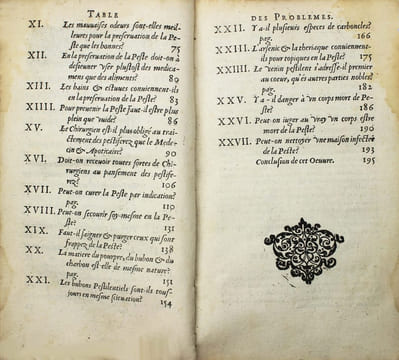 TABLE
XI. Les mauuaises odeurs sont-elles meil-
leures pour la preseruation de la Pest
que les bonnes? 75
XII. En la preseruation de la Peste doit-on à
desieuner vser plustost des medica-
mens que des aliments? 89
XIII. Les bains & estuues conuiennent-ils
en la preseruation de la Peste? 83
XIIII. Pour preuenir la Peste faut-il estre plus
plein que vuide? 86
XV. Le Chirurgien est-il plus obligé au trai-
ctement des pestiferez que le Mede-
cin & Apoticaire? 90
XVI. Doit-on receuoir toutes sortes de Chi-
rurgiens au pansement des pestife-
rez? 106
XVII. Peut-on curer la Peste par indication?
pag. 110
XVIII. Peut-on secourir soy-mesme en la Pe-
ste? 131
XIX. Faut-il saigner & purger ceux qui sont
frappez de la Peste? 138
XX. La matiere du pourpre, du bubon & du
charbon est-elle de mesme nature?
pag. 151
XXI. Les bubons Pestilentiels sont-ils tous-
jours en mesme scituation? 154
DES PROBLEMES.
XXII. Y a-il plusieurs especes de carboncles?
pag. 166
XXIII. L'arsenic & la theriaque conuiennent-
ils pour topiques en la Peste? 175
XXIIII. Le venin pestilent s'adresse-il premier
au coeur, qu'és autres parties nobles?
pag. 182
XXV. Y a-il danger à vn corps mort de Pe-
ste? 186
XXVI. Peut-on iuger au vray vn corps estre
mort de la Peste? 190
XXVII. Peut-on nettoyer vne maison infectée
de la Peste? 193
Conclusion de cet Oeuure. 195